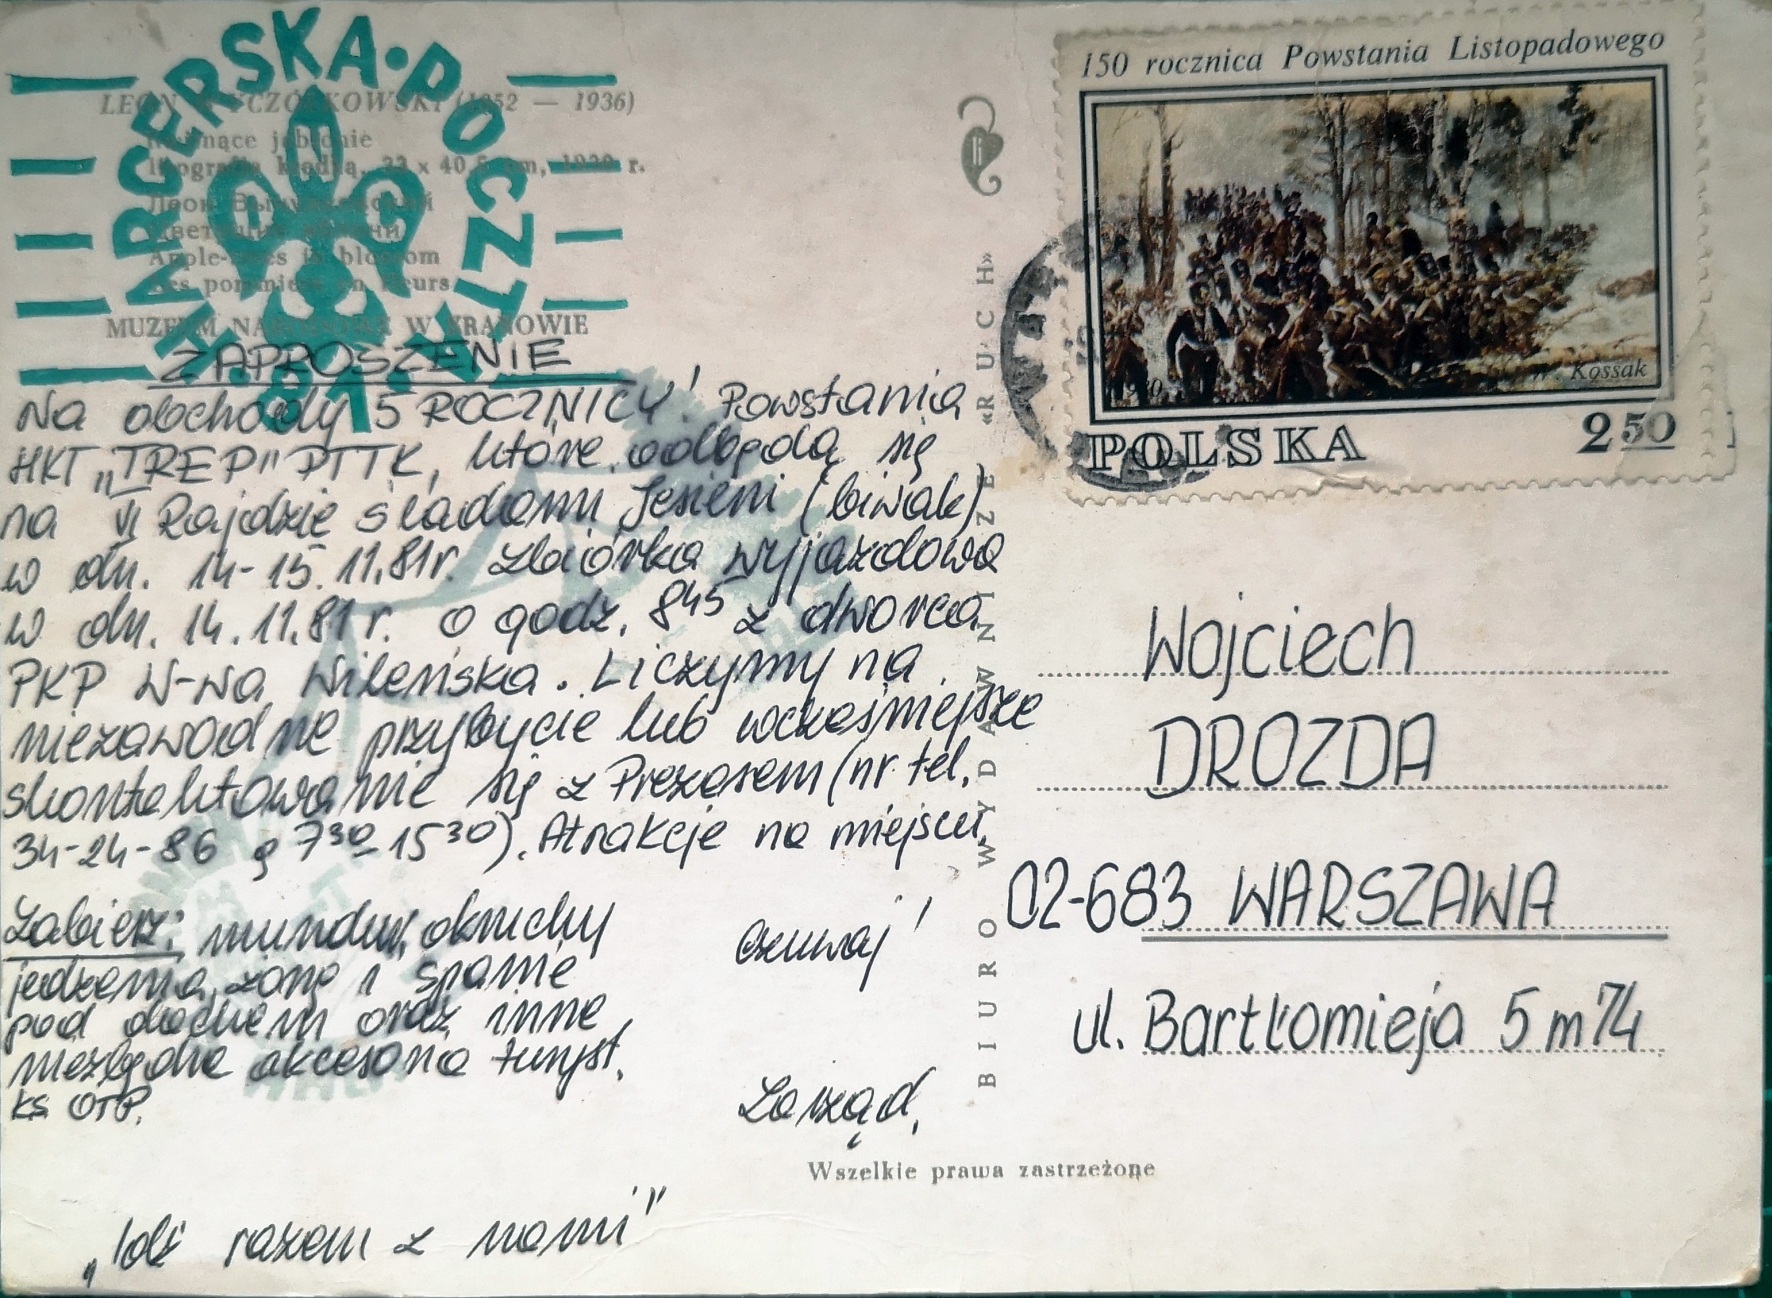 HARCERSKA • POCZTA
LEON WYCZÓŁKOWSKI (1852 — 1936)
Kwitnące jabłonie
litografia kredką, 32 x 40,5 cm, r.
Леон Вычулковский
Цветущие яблони
Apple-trees in blossom
Les pommiers en fleurs
MUZEUM NARODOWE W KRAKOWIE
81
ZAPROSZENIE
Na obchody 5 ROCZNICY! Powstania
HKT „TREP" PTTK, które odbędą się
na VI Rajdzie śladami Jesieni (biwak)
w dn. 14-15.11.81r. Zbiórka wyjazdowa
w dn. 14.11.81r. o godz. 8 45 z dworca
PKP W-wa Wileńska. Liczymy na
niezawodne przybycie lub wcześniejsze
skontaktowanie się z Prezesem (nr tel.
34-24-86 g 7 30 - 15 30). Atrakcje na miejscu.
Zabierz: mundur, okruchy
jedzenia, żonę i spanie
pod dachem oraz inne
niezbędne akcesoria turyst.
KS OTP.
Czuwaj!
Zarząd.
„Idź razem z nami"
BIURO WYDAWNICZE «RUCH»
Wszelkie prawa zastrzeżone
150 rocznica Powstania Listopadowego
W. Kossak
POLSKA 2 50
Wojciech
DROZDA
02-683 WARSZAWA
ul. Bartłomieja 5 m 74